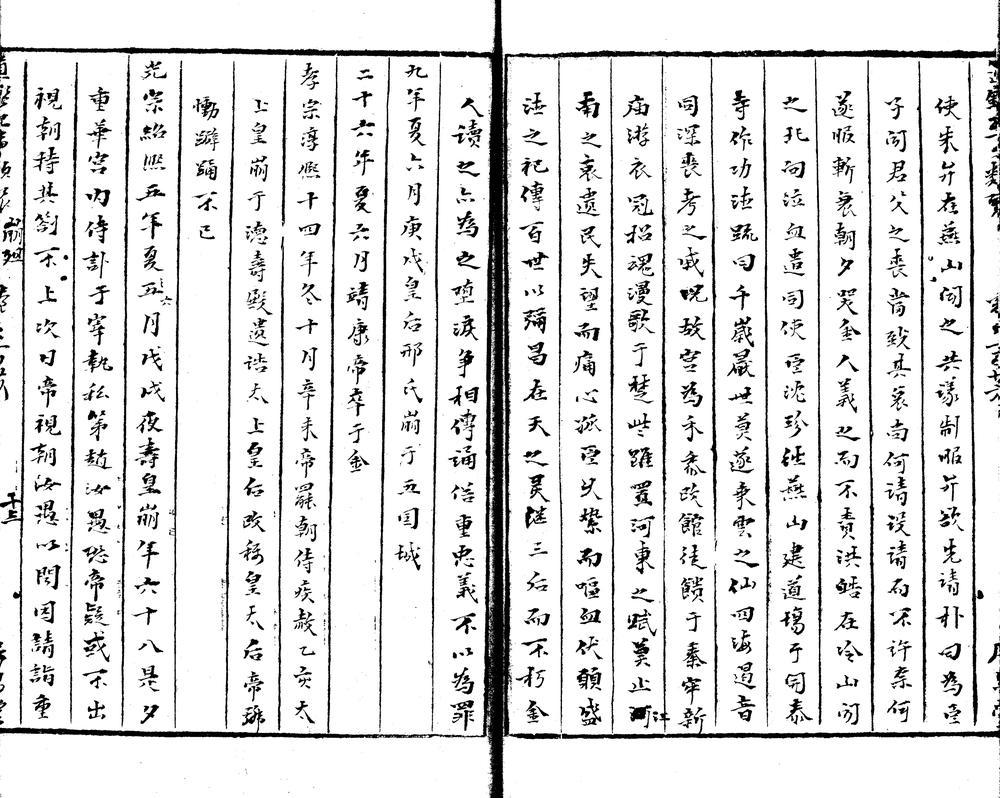 使朱弁在燕山聞之共議制服弁欲先請朴曰為臣
子聞君父之喪當致其哀尚何請設請而不許柰何
遂服斬衰朝夕哭金人義之而不責洪皓在冷山聞
之北向泣血遣同使臣沈珍往燕山建道塲于開泰
寺作功德疏曰千歲厭世莫遂乘雲之仙四海遏音
同深喪考之戚况故宮為禾黍改館徒饋于秦牢新
庙游衣冠招魂漫歌于楚些雖置河東之賦莫止江
南之哀遺民失望而痛心孤臣久縶而嘔血伏願盛
德之祀傳百世以彌昌在天之靈继三后而不朽金
人讀之亦為之墮淚爭相傳誦俗重忠義不以為罪
九年夏六月庚戌皇后邢氏崩于五国城
二十六年夏六月靖康帝卒于金
孝宗淳熙十四年冬十月辛未帝罷朝侍疾赦乙亥太
上皇崩于德壽殿遺誥太上皇后改称皇太后帝號
慟擗踊不已
光宗紹熙五年夏六月戊戌夜壽皇崩年六十八是夕
重華宮内侍訃于宰執私第趙汝愚恐帝疑或不出
視朝持其劄不上次日帝視朝汝愚以聞因請詣重
十三